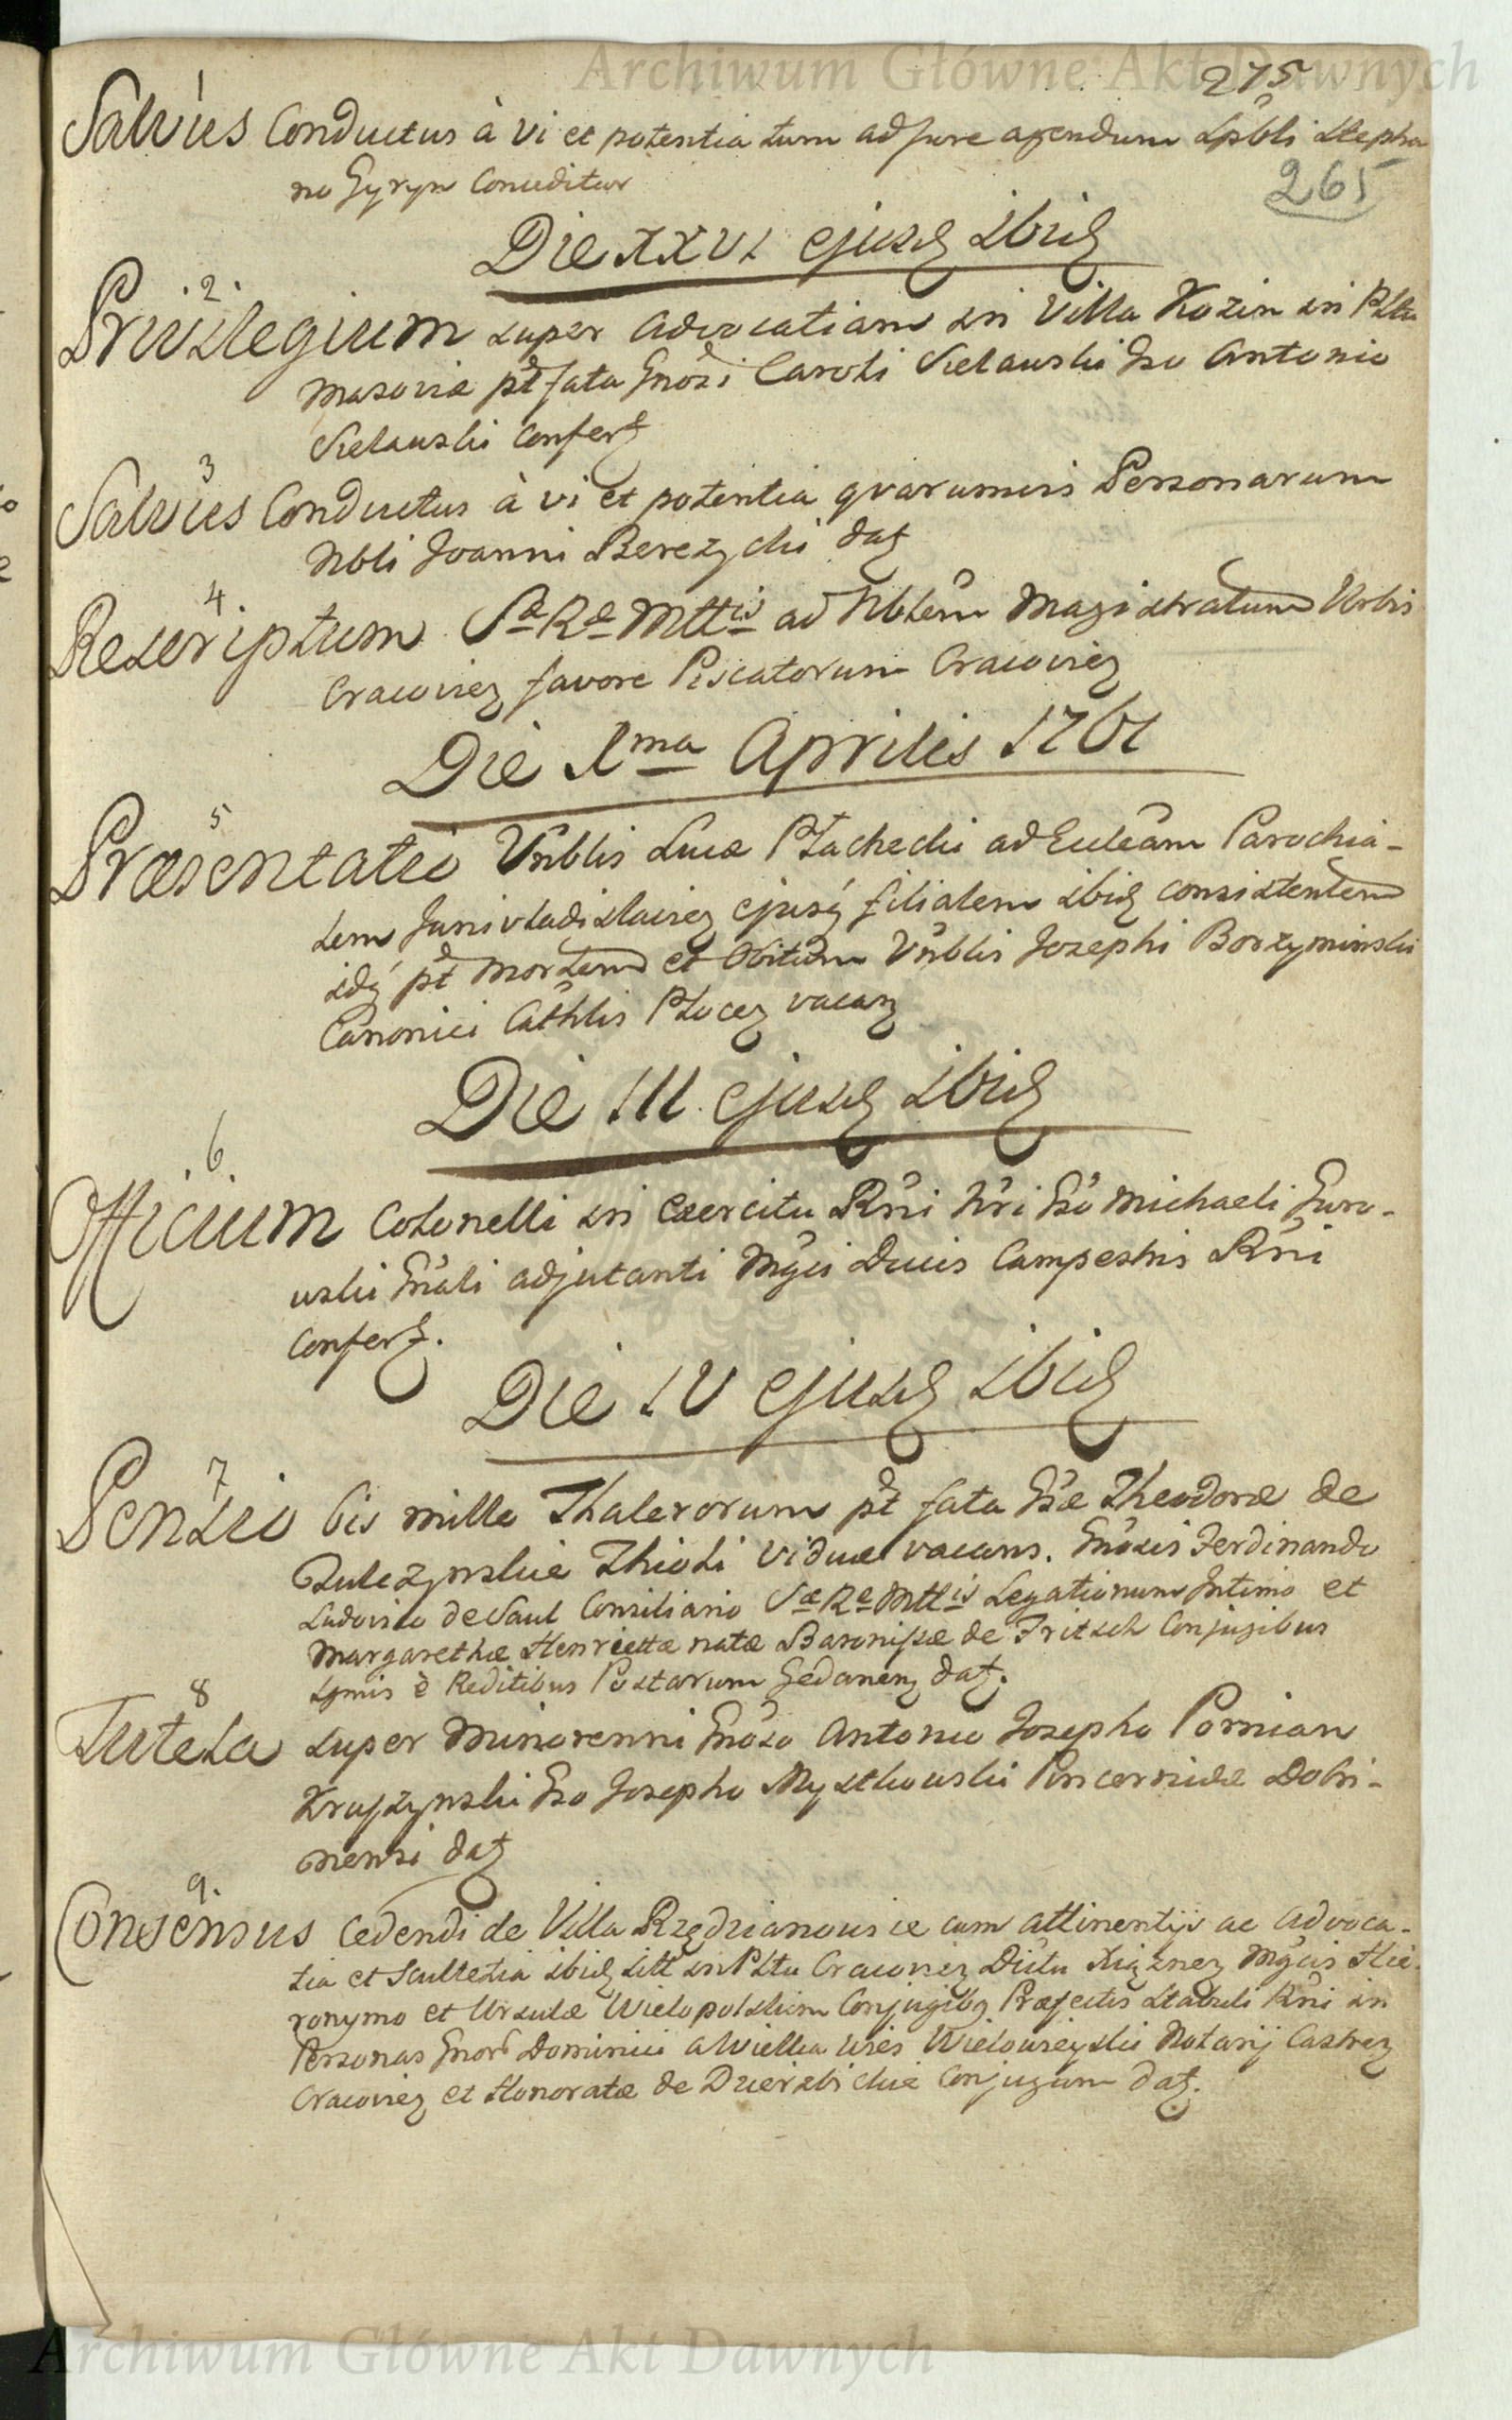 Archiwum Główne Akt Dawnych
275
1
Salvus Conductus à vi et potentia tum ad Jure agendum Spbli Stepha
no Gyryn Conceditur
265
Die XXVI ejusd ibid
.2.
Privilegium super Advocatiam in Villa Kozin in Pltu
Masoviæ pt fata Gnosi Caroli Sielauski Gso Antonio
Sielauski Confert
3
Salvus Conductus à vi et potentia qvarumvis Personarum
Nbli Joanni Berezychi dat
4.
Rescriptum Sæ Ræ Mttis ad Nblem Magistratum Urbis
Cracovien favore Piscatorum Cracovien
Die Ima Aprilis 1761
5
Præsentatio Vnblis Lucæ Płachecki ad Ecclëam Parochia-
lem Junivladislavien ejusq filialem ibid consistentem
idq pt mortem et Obitum Vnblis Josephi Borzyminski
Canonici Cathlis Plocen vacan
Die III ejusd ibid
.6.
Officium Colonelli in Exercitu Rni Nri Gso Michaeli Guro-
wski Gnali adjutanti Mgci Ducis Campestris Rni
Confert.
Die IV ejusd ibid
7
Pensio bis mille Thalerorum pt fata Gsæ Theodoræ de
Zulezynskie Thioli Viduæ vacans. Gnosis Ferdinando
Ludovico de Saul Consiliario Sæ Ræ Mttis Legationum Intimo et
Margarethæ Henriettæ natæ Baronissæ de Fritsch Conjugibus
Lgmis è Reditibus Postarum Gedanen dat.
8
Tutela super Minorenni Gnoso Antonio Josepho Pornian
Kruszynski Gso Josepho Mysthowski Pincernidæ Dobri-
nensi dat
9.
Consensus Cedendi de Villa Rzędzianowice cum attinentijs ac Advoca-
tia et Scultetia ibid sitt in Pltu Cracovien Dictu Xiąznen Mgcis Hie-
ronymo et Ursulæ Wielopolskim Conjugibq Præfectis Stabuli Rni in
Personas Gnor Dominici a Wielka Wies Wielowieyski Notarij Castren
Cracovien et Honoratæ de Dzierzbickie Conjugum dat.
Archiwum Główne Akt Dawnych